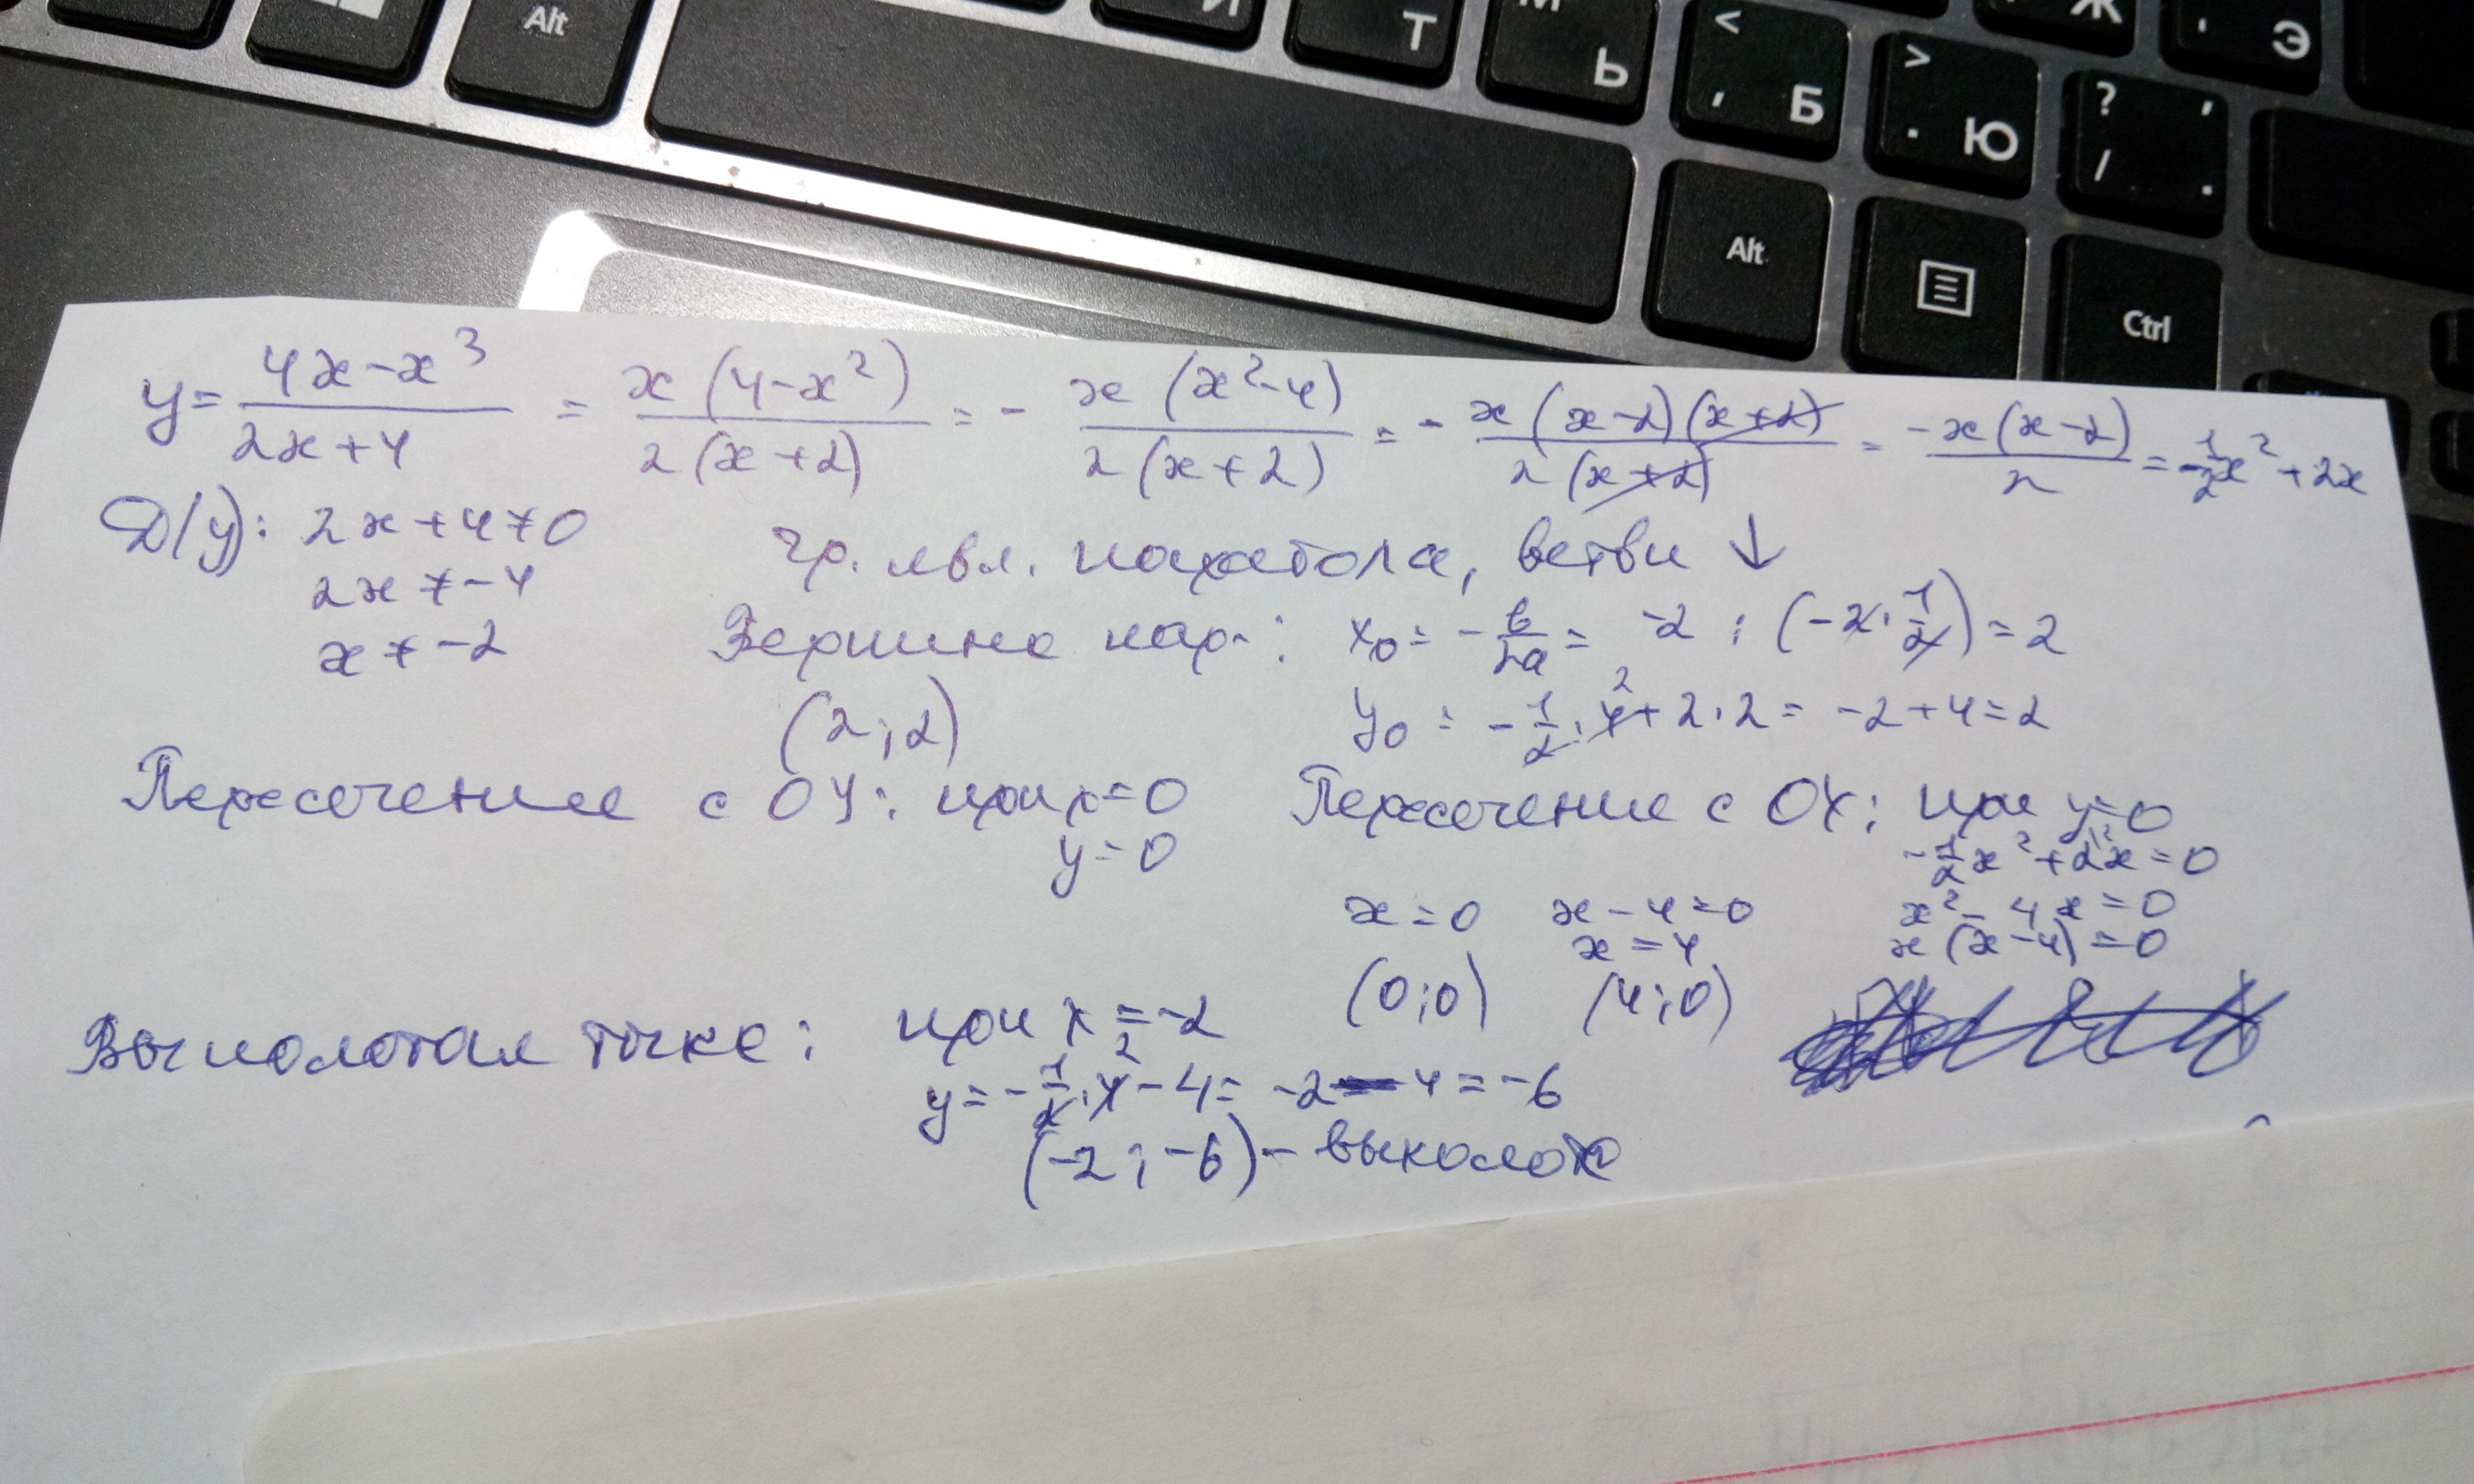 Alt
И
Т
М
Ь
< , Б
> . Ю
Ж
' Э
? , / .
Alt
Ctrl
y = (4x-x³)/(2x+4) = x(4-x²)/2(x+2) = - x(x²-4)/2(x+2) = - x(x-2)(x+2)/2(x+2) = -x(x-2)/2 = -1/2x²+2x
Д(y): 2x+4≠0
2x≠-4
x≠-2
гр. явл. парабола, ветви ↓
Вершина пар-: x₀ = -в/2a = -2 : (-2·1/2) = 2
(2;2)
y₀ = -1/2·4+2·2 = -2+4=2
Пересечение с OY: при x=0
y=0
Пересечение с OX: при y=0
-1/2x²+2x=0
x²-4x=0
x(x-4)=0
x=0 x-4=0
x=4
(0;0) (4;0)
Выколотая точка: при x=-2
y=-1/2·4-4= -2-4=-6
(-2;-6)- выколота